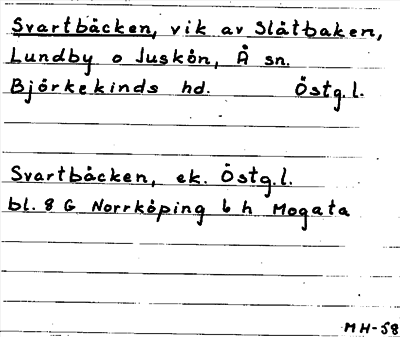 Svartbäcken, vik av Slätbaken,
Lundby o Juskön, Å sn.
Björkekinds hd. Östg.l.
Svartbäcken, ek. Östg.l.
bl. 8 G Norrköping 6 h Mogata
MH-58